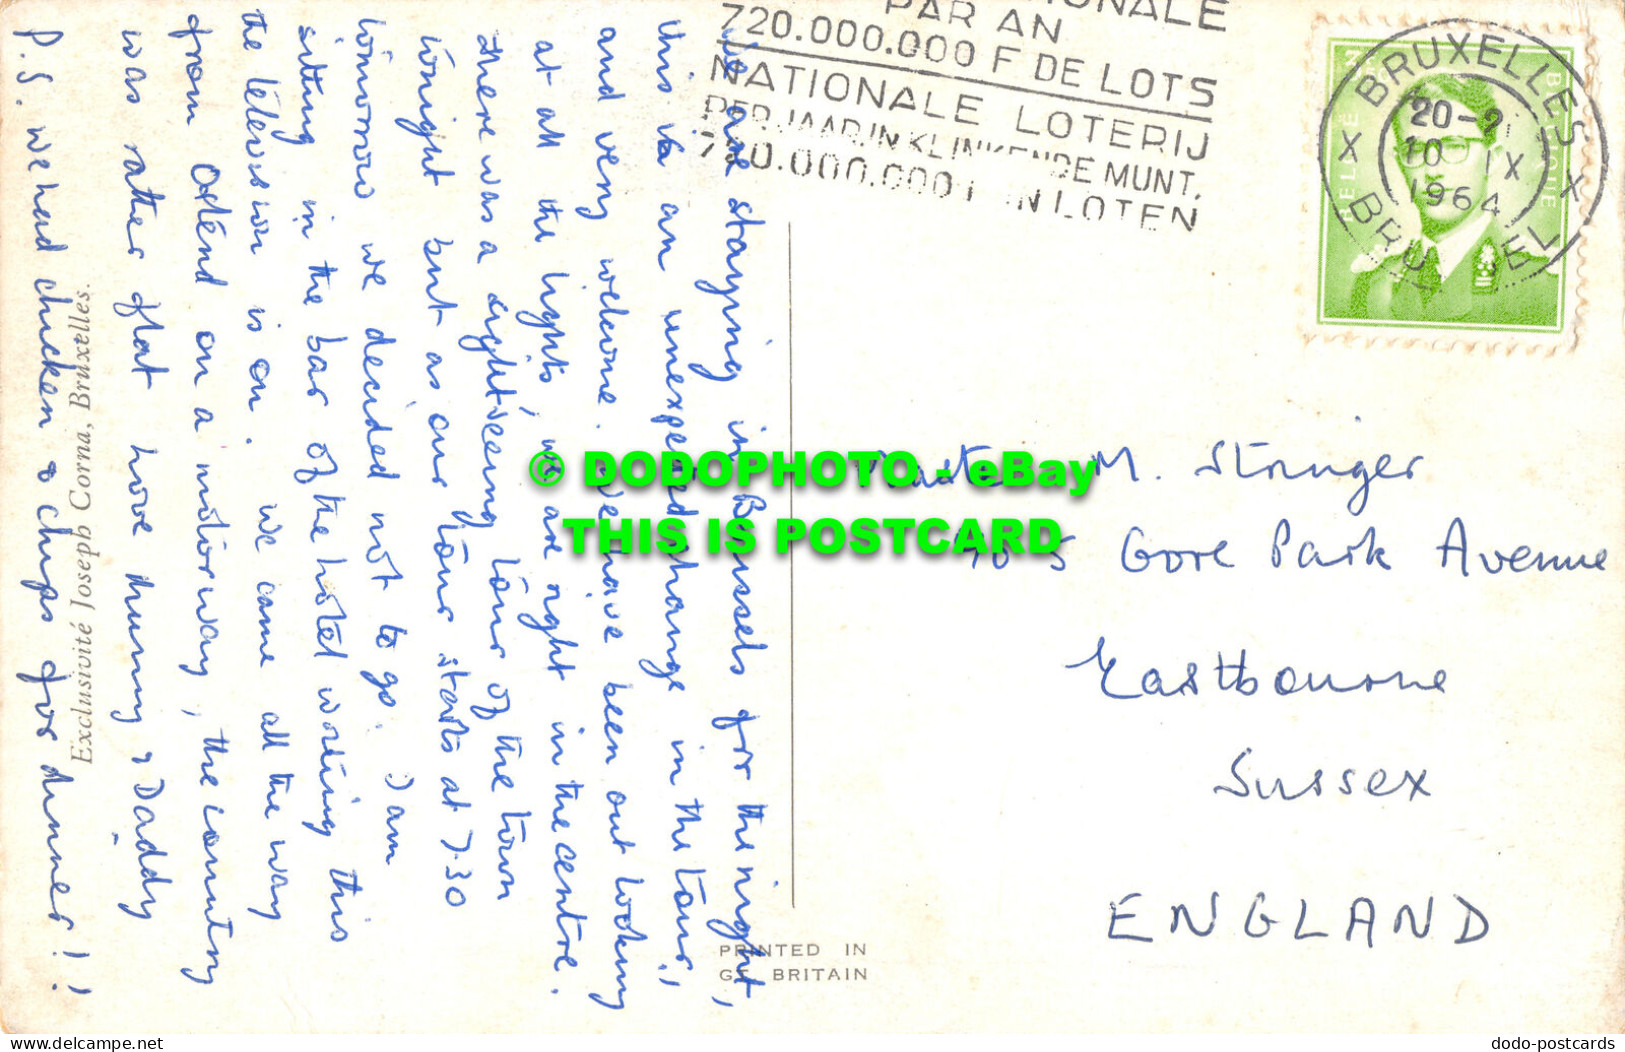 We are staying in Brussels for the night,
this is an unexpected change in the tour,
and very welcome. We have been out looking
at all the lights, we are right in the centre.
There was a sightseeing tour of the town
tonight but as our tour starts at 7.30
tomorrow we decided not to go. I am
sitting in the bar of the hotel writing this
the television is on. We came all the way
from Ostend on a motorway, the country
was rather flat love Mummy & Daddy
P.S. we had chicken & chips for dinner!!
Exclusivité Joseph Corna, Bruxelles.
PAR AN
720.000.000 F DE LOTS
NATIONALE LOTERIJ
PER JAAR IN KLINKENDE MUNT.
720.000.000 F IN LOTEN
BRUXELLES X
X BRUSSEL
20-9
10 IX
1964
BELGIQUE
BELGIË
Master M. Stringer
5 Gore Park Avenue
Eastbourne
Sussex
ENGLAND
PRINTED IN
GT. BRITAIN
© DODOPHOTO - eBay
THIS IS POSTCARD
delcampe.net
dodo-postcards